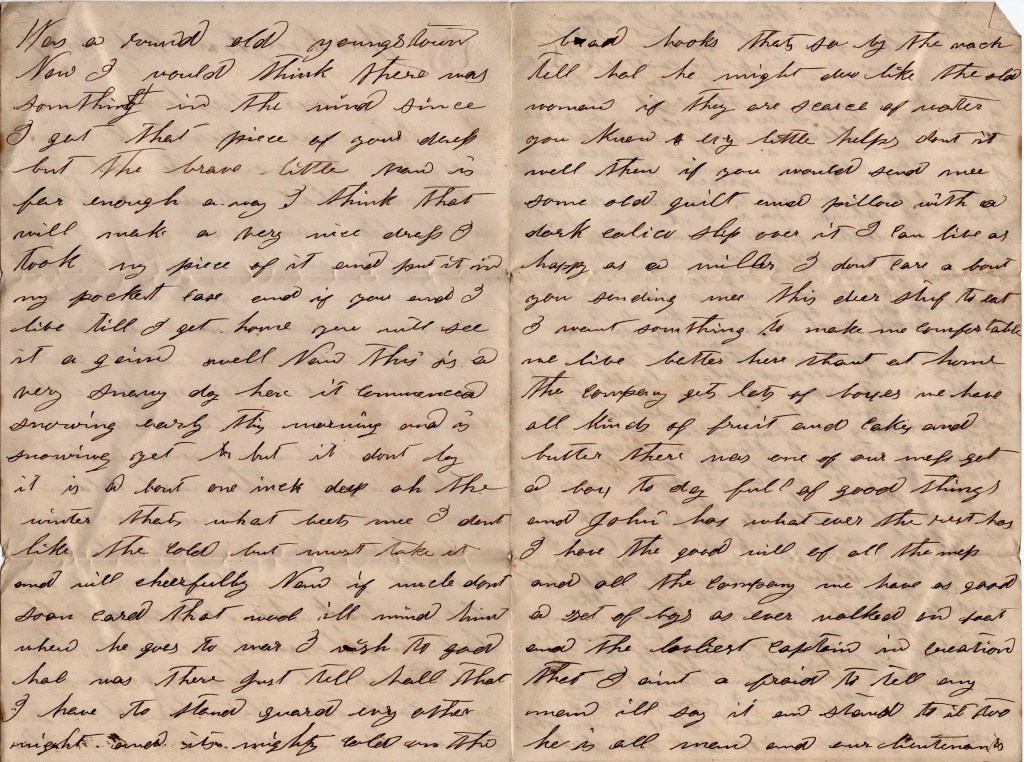 Was a round old youngstown
Now I would think there was
something in the wind since
I got that piece of your dress
but the brave little man is
far enough a way I think that
will make a very nice dress I
took my piece of it and put it in
my pocket case and if you and I
live till I get home you will see
it a gain well Now this is a
very snowy day here it commenced
snowing early this morning and is
snowing yet but it dont lay
it is a bout one inch deep oh the
winter thats what beets mee I dont
like the cold but must take it
and will cheerfully Now if uncle dont
soon card that wool ill mind him
when he goes to war I wish to god
hal was there just tell hall that
I have to stand guard evry other
night and its mighty cold on the
head looks thats so by the
tell hal he might doo like the old
woman if they are scarce of watter
you know evry little helps dont it
well then if you would send mee
some old quilt and pillow with a
dark calico slip over it I can live as
happy as a miller I dont care a bout
you sending mee this deer stuf to eat
I want something to make me comfortable
we live better here thant at home
the company gets lots of boxes we have
all kinds of fruit and cakes and
butter there was one of our mess got
a box to day full of good things
and John has what ever the rest has
I have the good will of all the mess
and all the company we have as good
a set of boys as ever walked on foot
and the captain in creation
that I aint a fraid to tell any
man ill say it and stand to it too
he is all man and our lieutenants